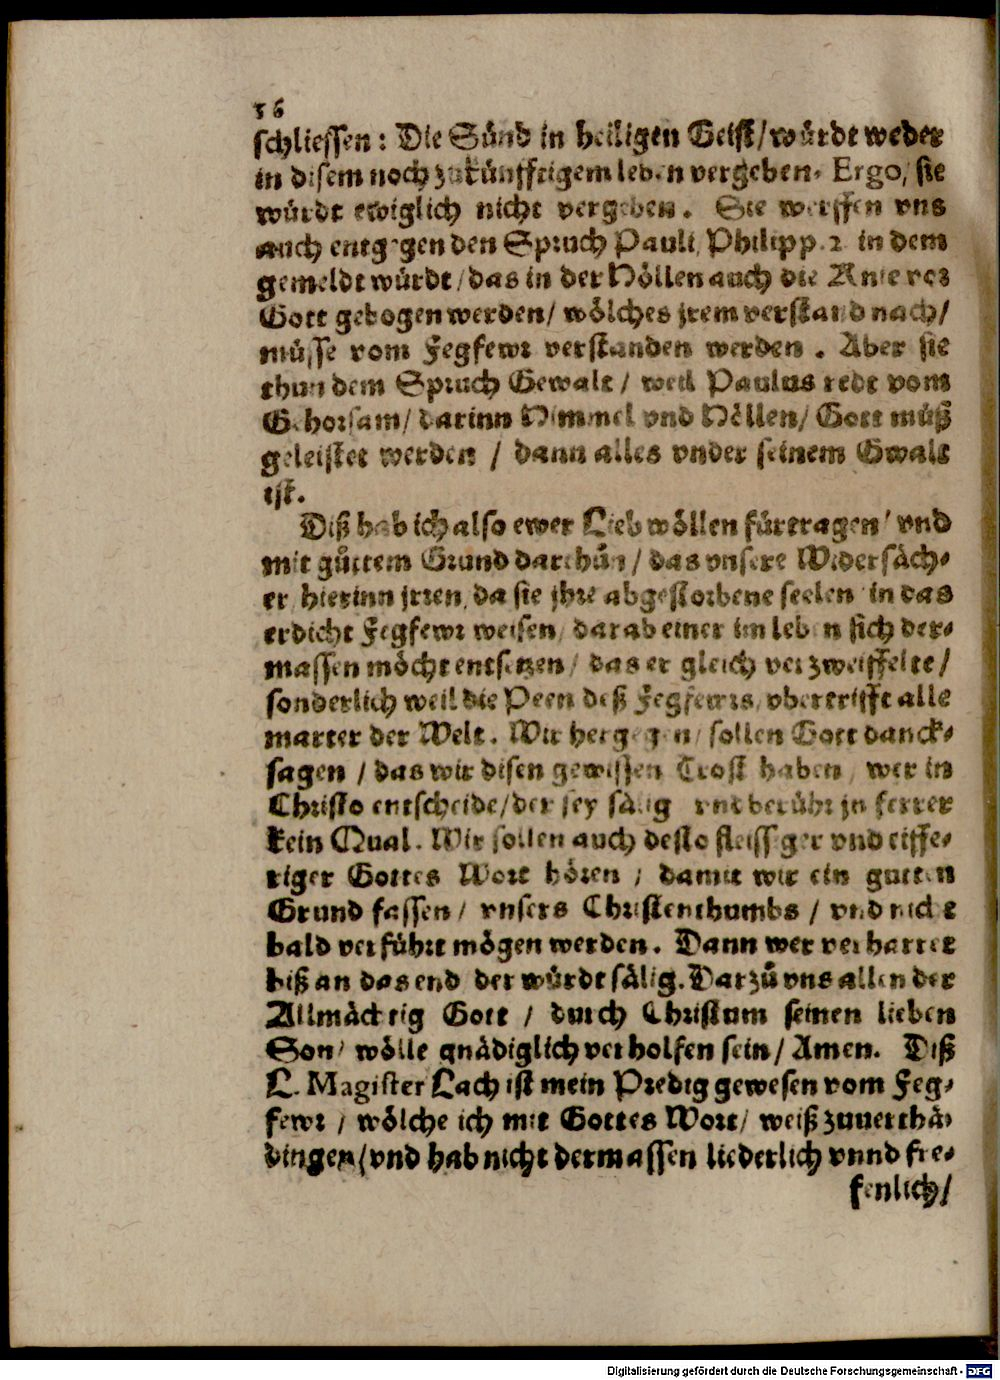 56
schliessen: Die Sünd in heiligen Geist/ würdt weder
in disem noch zukünfftigem leben vergeben. Ergo, sie
würdt ewiglich nicht vergeben. Sie werffen vns
auch entgegen den Spruch Pauli, Philipp. 2 in dem
gemeldt würdt/ das in der Höllen auch die Knie vor
Gott gebogen werden/ wölches jrem verstand nach/
müsse vom Fegfewr verstanden werden. Aber sie
thun dem Spruch Gewalt/ weil Paulus redt vom
Gehorsam/ darinn Himmel vnd Höllen/ Gott müß
geleistet werden / dann alles vnder seinem Gwalt
ist.
Diß hab ich also ewer Lieb wöllen fürtragen/ vnd
mit gůttem Grund darthůn/ das vnsere Widersäch-
er hierinn jrren, da sie jhre abgestorbene seelen in das
erdicht Fegfewr weisen/ darab einer im leben sich der-
massen möcht entsetzen/ das er gleich verzweiffelte/
sonderlich weil die Peen deß Fegfewrs, vbertrifft alle
marter der Welt. Wir hergegen/ sollen Gott danck-
sagen / das wir disen gewissen Trost haben/ wer in
Christo entscheide/ der sey sälig vnd berühr jn ferrer
kein Qual. Wir sollen auch desto fleissiger vnd eiffe-
riger Gottes Wort hören / damit wir ein gutten
Grund fassen/ vnsers Christenthumbs / vnd nicht
bald verführt mögen werden. Dann wer verharret
biß an das end der würdt sälig. Darzů vns allen der
Allmächtig Gott / durch Christum seinen lieben
Son/ wölle gnädiglich verholfen sein/ Amen. Diß
L. Magister Lach ist mein Predig gewesen vom Feg-
fewr / wölche ich mit Gottes Wort/ weiß zuuerthä-
dingen/ vnd hab nicht dermassen liederlich vnnd fre-
fenlich/
Digitalisierung gefördert durch die Deutsche Forschungsgemeinschaft - DFG